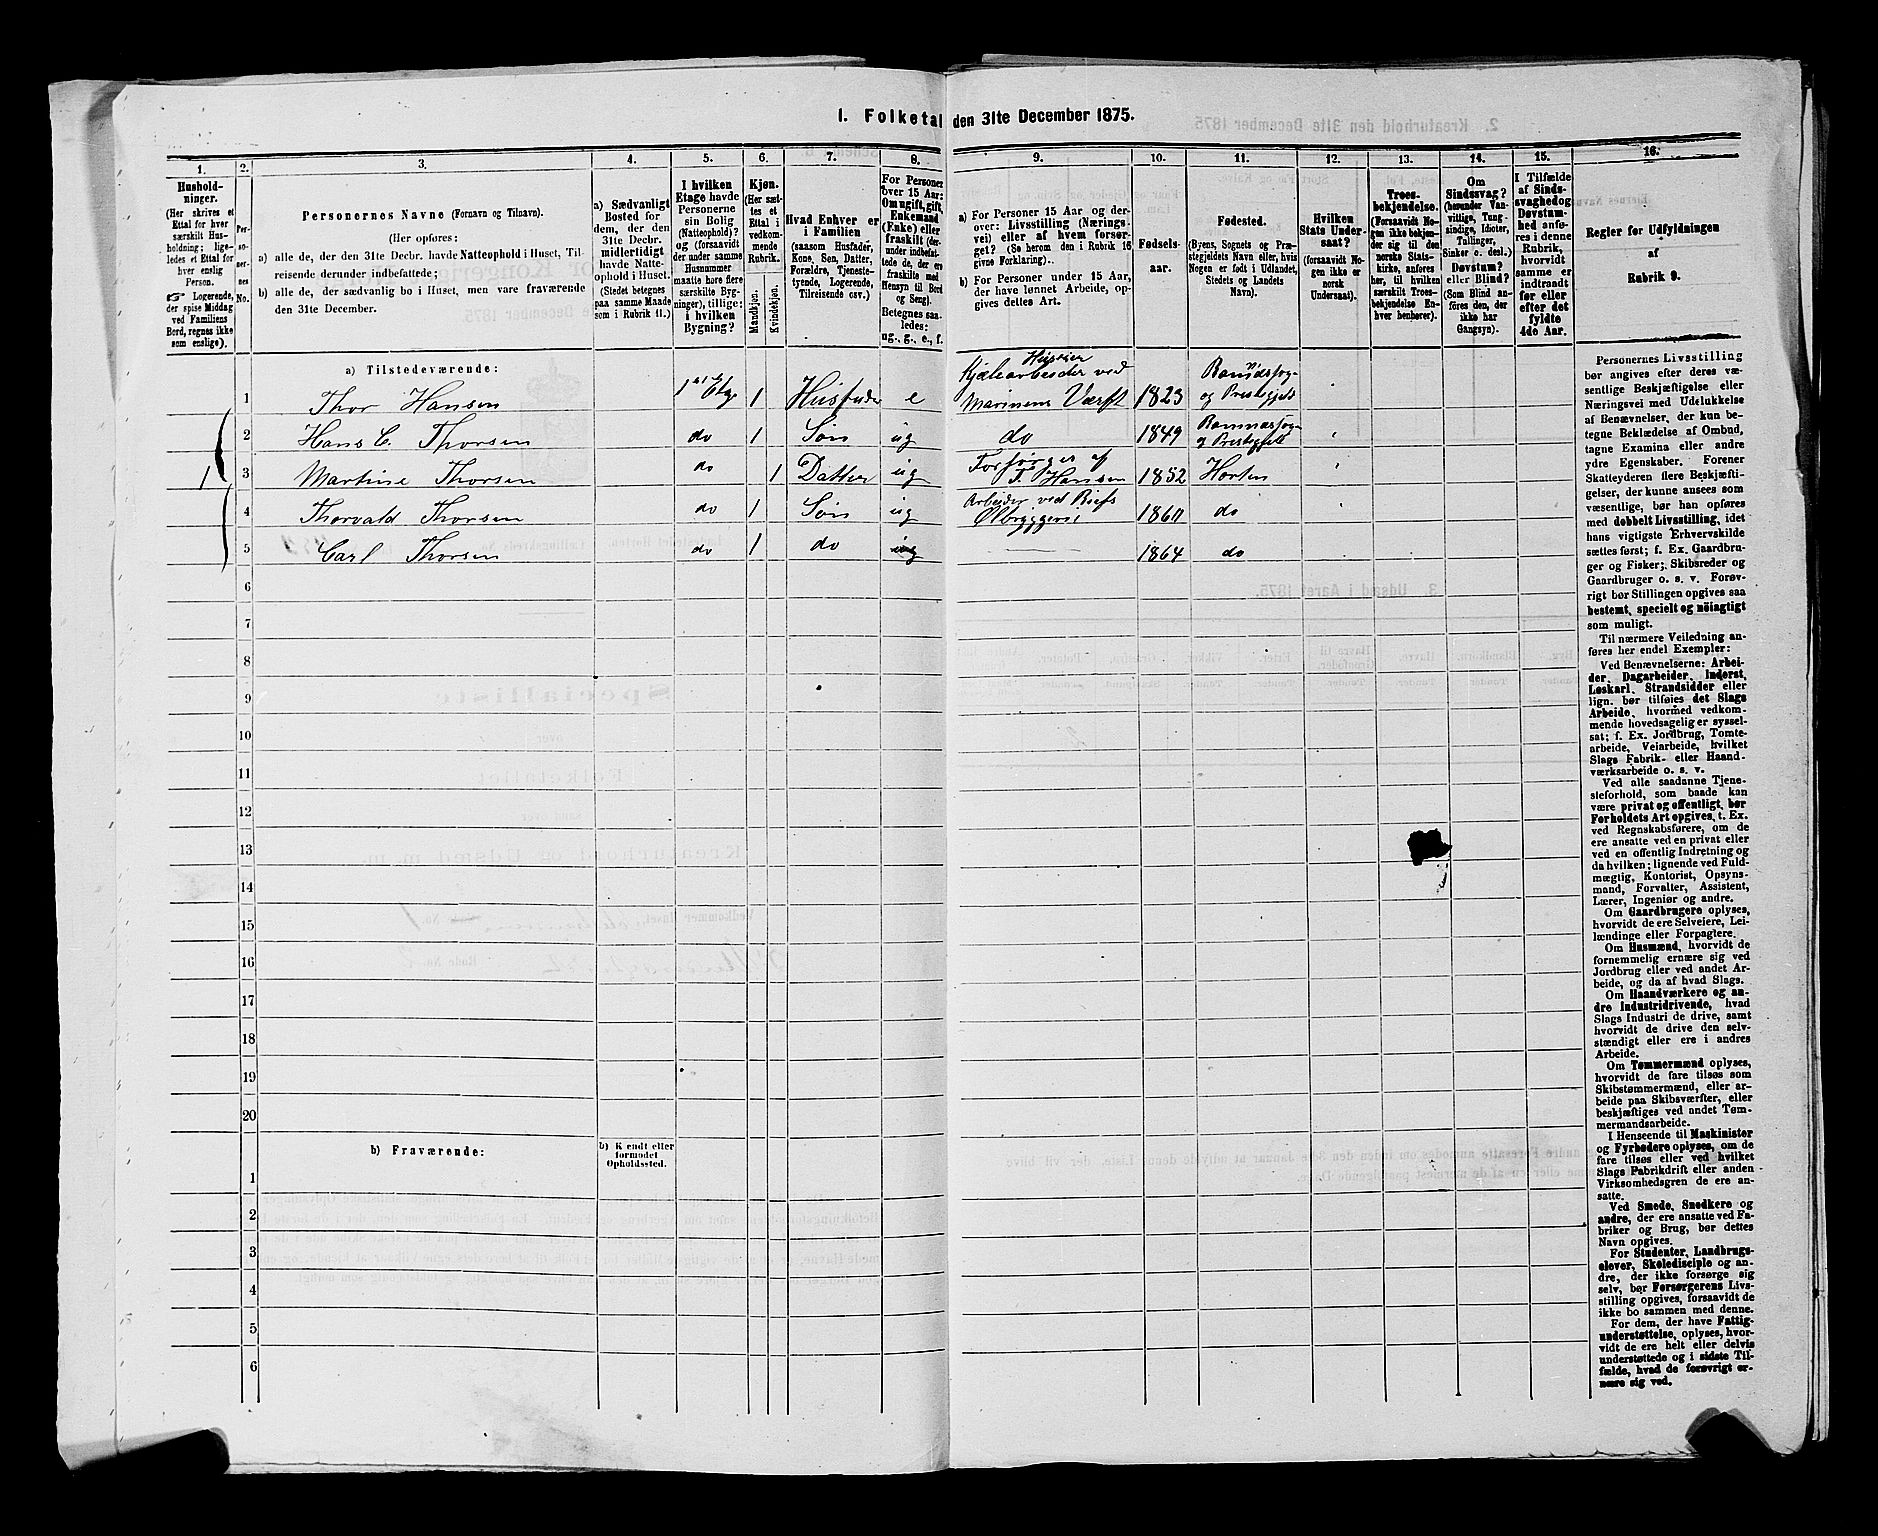 1. Folketal den 31te December 1875.
1.
2.
3.
4.
5.
6.
7.
8.
9.
10.
11.
12.
13.
14.
15.
16.
Hushold-
ninger.
(Her skrives et
Ettal for hver
særskilt Hus-
holdning; lige-
ledes et Ettal for
hver enslig
Person.
☞ Logerende,
der spise Middag
ved Familiens
Bord, regnes ikke
som enslige).
Per-
so-
ner-
nes
No.
Personernes Navne (Fornavn og Tilnavn).
(Her opføres:
a) alle de, der den 31te Decbr. havde Natteophold i Huset, Til-
reisende derunder indbefattede;
b) alle de, der sædvanlig bo i Huset, men vare fraværende
den 31te December.
a) Sædvanligt
Bosted for
dem, der den
31te Decbr.
midlertidigt
havde Natte-
ophold i Huset.
(Stedet betegnes
paa samme Maade
som i Rubrik 11.)
I hvilken
Etage havde
Personerne
sin Bolig
(Natteophold)?
og (forsaavidt
der under samme
Husnummer
maatte høre flere
særskilte Byg-
ninger), tillige:
i hvilken
Bygning?
Kjøn.
(Her sæt-
tes et
Ettal i
vedkom-
mende
Rubrik.
Mandkjøn.
Kvindekjøn.
Hvad Enhver er
i Familien
(saasom Husfader,
Kone, Søn, Datter,
Forældre, Tjeneste-
tyende, Logerende,
Tilreisende osv.)
For Personer
over 15 Aar:
Om ugift, gift,
Enkemand
(Enke) eller
fraskilt (der-
under indbefat-
tede de, der ere
fraskilte med
Hensyn til Bord
og Seng).
Betegnes saa-
ledes:
ug., g., e., f.
a) For Personer 15 Aar og der-
over: Livsstilling (Nærings-
vei) eller af hvem forsør-
get? (Se herom den i Rubrik 16
givne Forklaring).
b) For Personer under 15 Aar,
der have lønnet Arbeide, op-
gives dettes Art.
Fødsels-
aar.
Fødested.
(Byens, Sognets og Præ-
stegjeldets Navn eller, hvis
Nogen er født i Udlandet,
Stedets og Landets
Navn).
Hvilken
Stats Under-
saat?
(forsaavidt No-
gen ikke er
norsk
Undersaat).
Troes-
bekjendelse.
(Forsaavidt No-
gen ikke bekjen-
der sig til den
norske Stats-
kirke, anføres
her, til hvilken
særskilt Troes-
bekjendelse En-
hver henhører).
Om
Sindssvag?
(herunder Van-
vittige, Tung-
sindige, Idioter,
Tullinger,
Sinker o. desl.)
Døvstum?
eller Blind?
(Som Blind an-
føres den, der
ikke har
Gangsyn).
I Tilfælde
af Sinds-
svaghed og
Døvstum-
hed anfø-
res i denne
Rubrik,
hvorvidt
samme er
indtraadt
før eller
efter det
fyldte
4de Aar.
Regler for Udfyldningen
af
Rubrik 9.
a) Tilstedeværende:
1 Thor Hansen 1ste Etage 1 Husfader e Huseier Kjelearbeider ved Marinens Værft 1823 og Prestegjeld
2 Hans C. Thorsen do 1 Søn ug do 1849 Prestegjeld
1 3 Martine Thorsen do 1 Datter ug Forsørges af T. Hansen 1852 Horten
4 Thorvald Thorsen do 1 Søn ug Arbeider ved Ølbryggeri 1860 do
5 Carl Thorsen do 1 do ug 1864 do
6
7
8
9
10
11
12
13
14
15
16
17
18
19
20
b) Fraværende:
b) Kjendt eller
formodet
Opholdssted.
1
2
3
4
5
6
Personernes Livsstilling
bør angives efter deres væ-
sentlige Beskjæftigelse eller
Næringsvei med Udelukkelse
af Benævnelser, der kun be-
tegne Beklædelse af Ombud,
tagne Examina eller andre
ydre Egenskaber. Forener
Skatteyderen flere Beskjæfti-
gelser, der kunne ansees som
væsentlige, bør han opføres
med dobbelt Livsstilling, idet
hans vigtigste Erhvervskilde
sættes først; f. Ex. Gaardbru-
ger og Fisker; Skibsreder og
Gaardbruger o. s. v. Forøv-
rigt bør Stillingen opgives saa
bestemt, specielt og nøiagtigt
som muligt.
Til nærmere Veiledning an-
føres her endel Exempler:
Ved Benævnelserne: Arbei-
der, Dagarbeider, Inderst,
Løskarl, Strandsidder eller
lign. bør tilføies det Slags
Arbeide, hvormed vedkom-
mende hovedsagelig er syssel-
sat; f. Ex. Jordbrug, Tomte-
arbeide, Veiarbeide, hvilket
Slags Fabrik- eller Haand-
værksarbeide o. s. v.
Ved alle saadanne Tjene-
steforhold, som baade kan
være privat og offentligt, bør
Forholdets Art opgives, t. Ex.
ved Regnskabsførere, om de
ere ansatte ved en privat eller
ved en offentlig Indretning og
da hvilken; lignende ved Fuld-
mægtig, Kontorist, Opsyns-
mand, Forvalter, Assistent,
Lærer, Ingeniør og andre.
Om Gaardbrugere oplyses,
hvorvidt de ere Selveiere, Lei-
lændinge eller Forpagtere.
Om Husmænd, hvorvidt de
fornemmelig ernære sig ved
Jordbrug eller ved andet Ar-
beide, og da af hvad Slags.
Om Haandværkere og an-
dre Industridrivende, hvad
Slags Industri de drive, samt
hvorvidt de drive den selv-
stændigt eller ere i andres
Arbeide.
Om Tømmermænd oplyses,
hvorvidt de fare tilsøs som
Skibstømmermænd, eller ar-
beide paa Skibsværfter, eller
beskjæftiges ved andet Tøm-
mermandsarbeide.
I Henseende til Maskinister
og Fyrbødere oplyses, om de
fare tilsøs eller ved hvilket
Slags Fabrikdrift eller anden
Virksomhedsgren de ere an-
satte.
Ved Smede, Snedkere og
andre, der ere ansatte ved Fa-
briker og Brug, bør dettes
Navn opgives.
For Studenter, Landbrugs-
elever, Skoledisciple og an-
dre, der ikke forsørge sig
selv, bør Forsørgerens Livs-
stilling opgives, forsaavidt de
ikke bo sammen med denne.
For dem, der have Fattig-
understøttelse, oplyses, hvor-
vidt de ere helt eller delvis
understøttede og i sidste Til-
fælde, hvad de forøvrigt er-
nære sig ved.